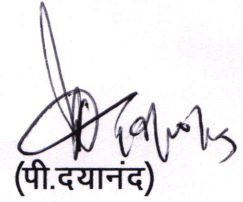 (पी.दयानंद)